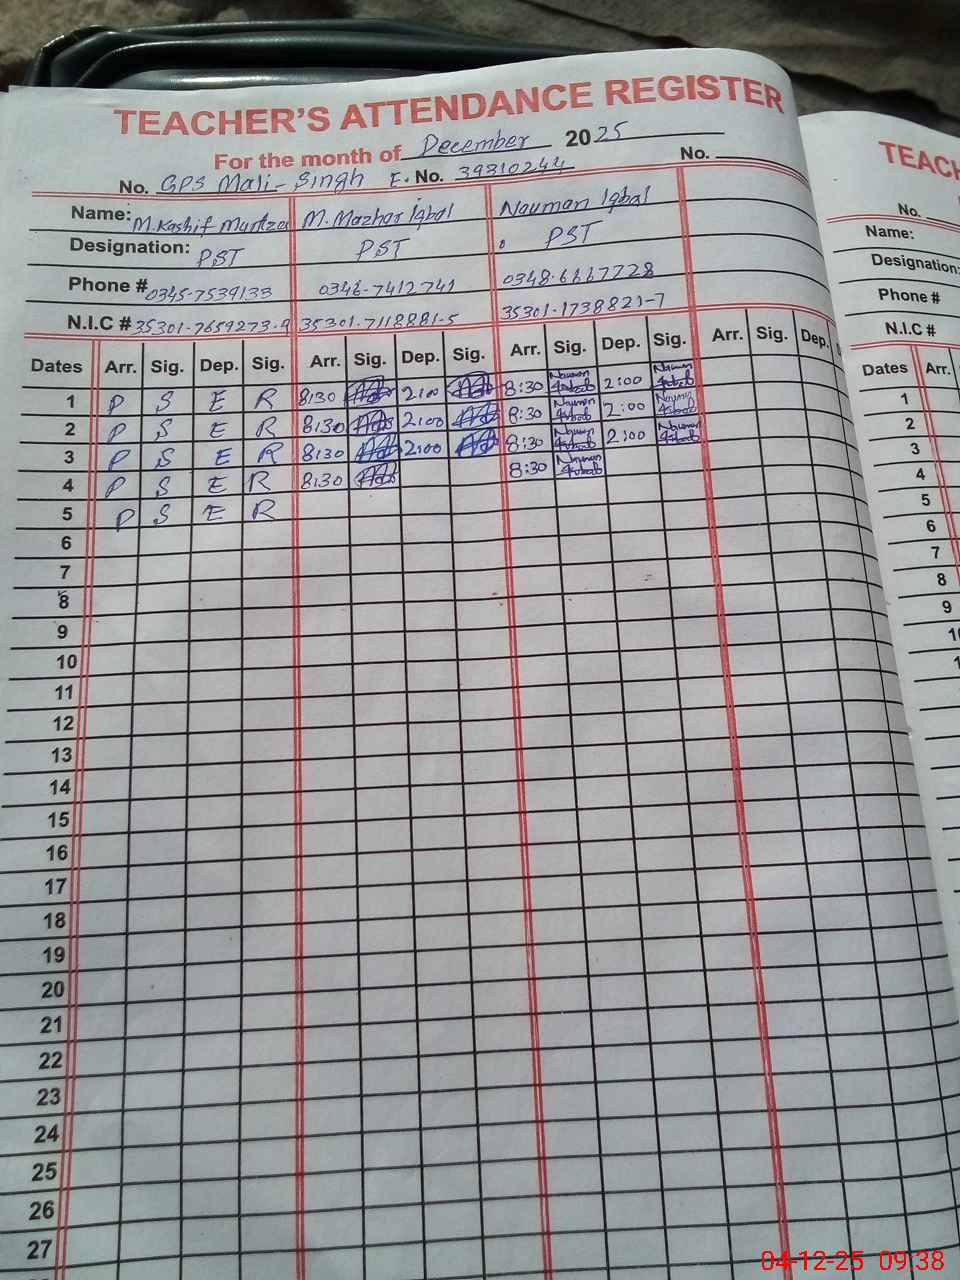 TEACHER'S ATTENDANCE REGISTER
For the month of December 2025
No. GPS Mali-Singh E. No. 39310244 No.
Name: M.Kashif Murtza M. Mazhar Iqbal Nauman Iqbal
Designation: PST PST PST
Phone # 0345-7539133 0346-7412741 0348-6667728
N.I.C # 35301-7659273-9 35301-7118881-5 35301-1738821-7
Dates Arr. Sig. Dep. Sig. Arr. Sig. Dep. Sig. Arr. Sig. Dep. Sig. Arr. Sig. Dep.
1 P S E R 8:30 2:00 8:30 Nauman 2:00 Nauman
2 P S E R 8:30 2:00 8:30 2:00
3 P S E R 8:30 2:00 8:30 Nauman 2:00 Nauman
4 P S E R 8:30 8:30 Nauman
5 P S E R
6
7
8
9
10
11
12
13
14
15
16
17
18
19
20
21
22
23
24
25
26
27
TEACH
No.
Name:
Designation:
Phone #
N.I.C #
Dates Arr.
1
2
3
4
5
6
7
8
9
04-12-25 09:38